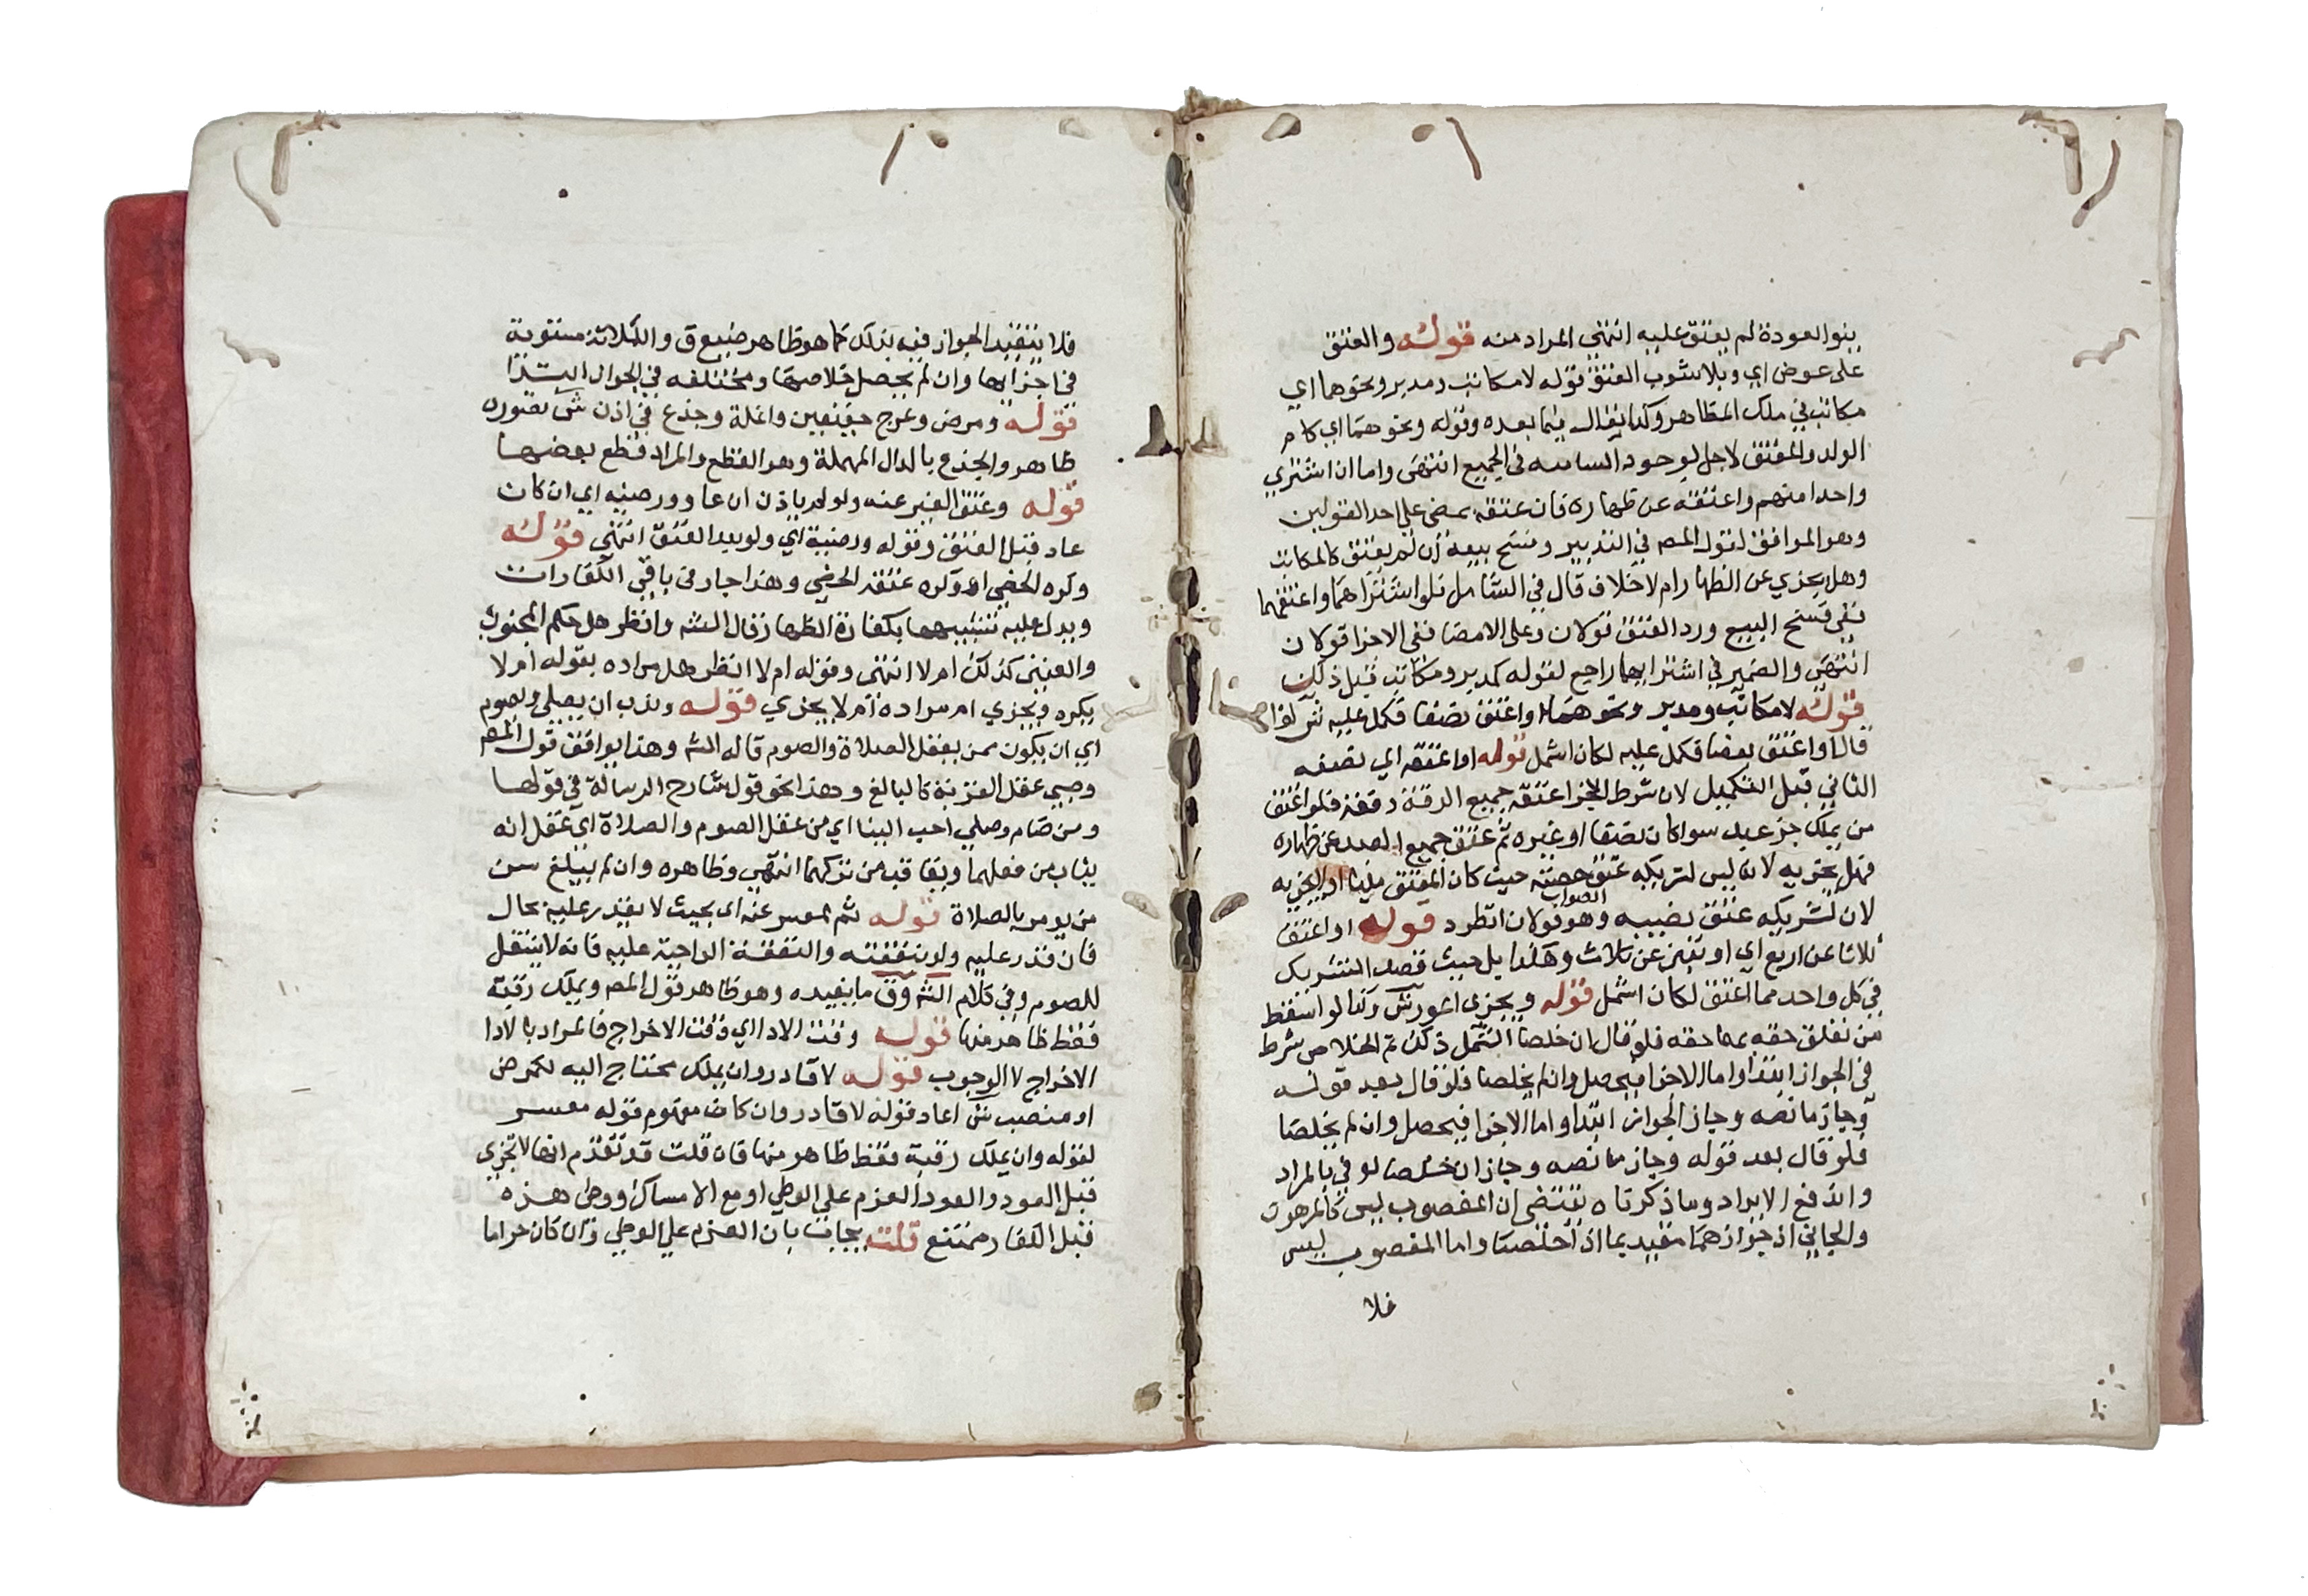 بنوا لعودة لم يعتق عليه انتهى المراد منه قوله والعتق
على عوض اي وبلا شوب العتق قوله لا مكاتب ومدبر ونحوهما اي
مكاتب في ملك المظاهر وكذا يقال فيما بعده وقوله ونحوهما اي كام
الولد والمعتق لاجل لوجود السابه في الجميع انتهى واما ان اشترى
واحدا منهم واعتقه عن ظهاره فان عتقه يمضى على احد القولين
وهو الموافق لقول المص في التدبير وفسخ بيعه ان لم يعتق كالمكاتب
وهل يجزي عن الظهار ام لا خلاف قال في الشامل فلو اشتراهما واعتقهما
ففى فسخ البيع ورد العتق قولان وعلى الامضا ففى الاجزا قولان
انتهى والضمير في اشترايهما راجع لقوله كمدبر ومكاتب قبل ذلك
قوله لا مكاتب ومدبر ونحوهما او اعتق نصفا فكمل عليه ش لو
قال او اعتق بعضا فكمل عليه لكان اشمل قوله او اعتقه اي نصفه
الثاني قبل التكميل لان شرط الاجزا عتقه جميع الرقبة دفعة فلو اعتق
من يملك جز عبد سوا كان نصفا او غيره ثم عتق جميع العبد عن ظهاره
فهل يجزيه لانه ليس لشريكه عتق حصته حيث كان المعتق مليا او لا يجزيه
لان لشريكه عتق نصيبه وهو الصواب قولان انظر د قوله او اعتق
ثلاثا عن اربع اي او ثنتين عن ثلاث وهكذا بل حيث قصد التشريك
في كل واحد مما اعتق لكان اشمل قوله ويجزى اعور ش وكذا لو اسقط
من تعلق حقه بهما حقه فلو قال ان خلصا اشتمل ذلك ثم الخلاص شرط
في الجواز ابتدا واما الاجزا فيحصل وان لم يخلصا فلو قال بعد قوله
وجاز ما نصه وجاز الجواز ابتدا واما الاجزا فيحصل وان لم يخلصا
فلو قال بعد قوله وجاز ما نصه وجاز ان خلصا لو في بالمراد
واندفع الايراد وما ذكرناه يقتضى ان المغصوب ليس كالمرهون
والجاني اذ جوازهما مقيد بما اذا خلصا واما المغصوب ليس
فلا
فلا يتقيد الجواز فيه بذلك كما هو ظاهر صنيع ق والثلاثة مستوية
في اجزايها وان لم يحصل خلاصها ومختلفه في الجواز ابتدا
قوله ومرض وعرج خفيفين وانملة وجذع في اذن ش تصوره
ظاهر والجذع بالدال المهملة وهو القطع والمراد قطع بعضها
قوله وعتق الغير عنه ولو لم ياذن ان عاد ورضيه اي ان كان
عاد قبل العتق وقوله ورضيه اي ولو بعد العتق انتهى قوله
وكره الخصى اي وكره عتقه الخصي وهذا جار فى باقي الكفارات
ويدل عليه تشبيهها بكفارة الظهار قال الشه وانظر هل حكم المجنون
والعنين كذلك ام لا انتهى وقوله ام لا انظر هل مراده بقوله ام لا
يكره ويجزي ام مراده ام لا يجزي قوله وندب ان يصلى ويصوم
اي ان يكون ممن يعقل الصلاة والصوم قاله الشه وهذا يوافق قول المص
وصبي عقل القربة كالبالغ وهذا نحو قول شارح الرسالة في قولها
ومن صام وصلى احب الينا اي من عقل الصوم والصلاة اي عقل انه
يثاب من فعلهما ويعاقب من تركهما انتهى وظاهره وان لم يبلغ سن
من يومر بالصلاة قوله ثم لمعسر عنه اي بحيث لا يقدر عليه بحال
فان قدر عليه ولو بنفقته والنفقة الواجبة عليه فانه لا ينتقل
للصوم وفي كلام الشه وق ما يفيده وهو ظاهر قول المص ويملك رقبة
فقط ظاهر منها قوله وقت الادا اي وقت الاخراج فالمراد بالادا
الاخراج لا الوجوب قوله لا قادر وان بملك محتاج اليه لكمرض
او منصب ش اعاد قوله لا قادر وان كان مفهوم قوله معسر
لقوله وان يملك رقبة فقط ظاهر منها فان قلت قد تقدم انها لا تجزي
قبل العود والعود العزم على الوطي او مع الامساك ووطى هذه
قبل الكفار ممتنع قلت يجاب بان العزم على الوطي وان كان حراما